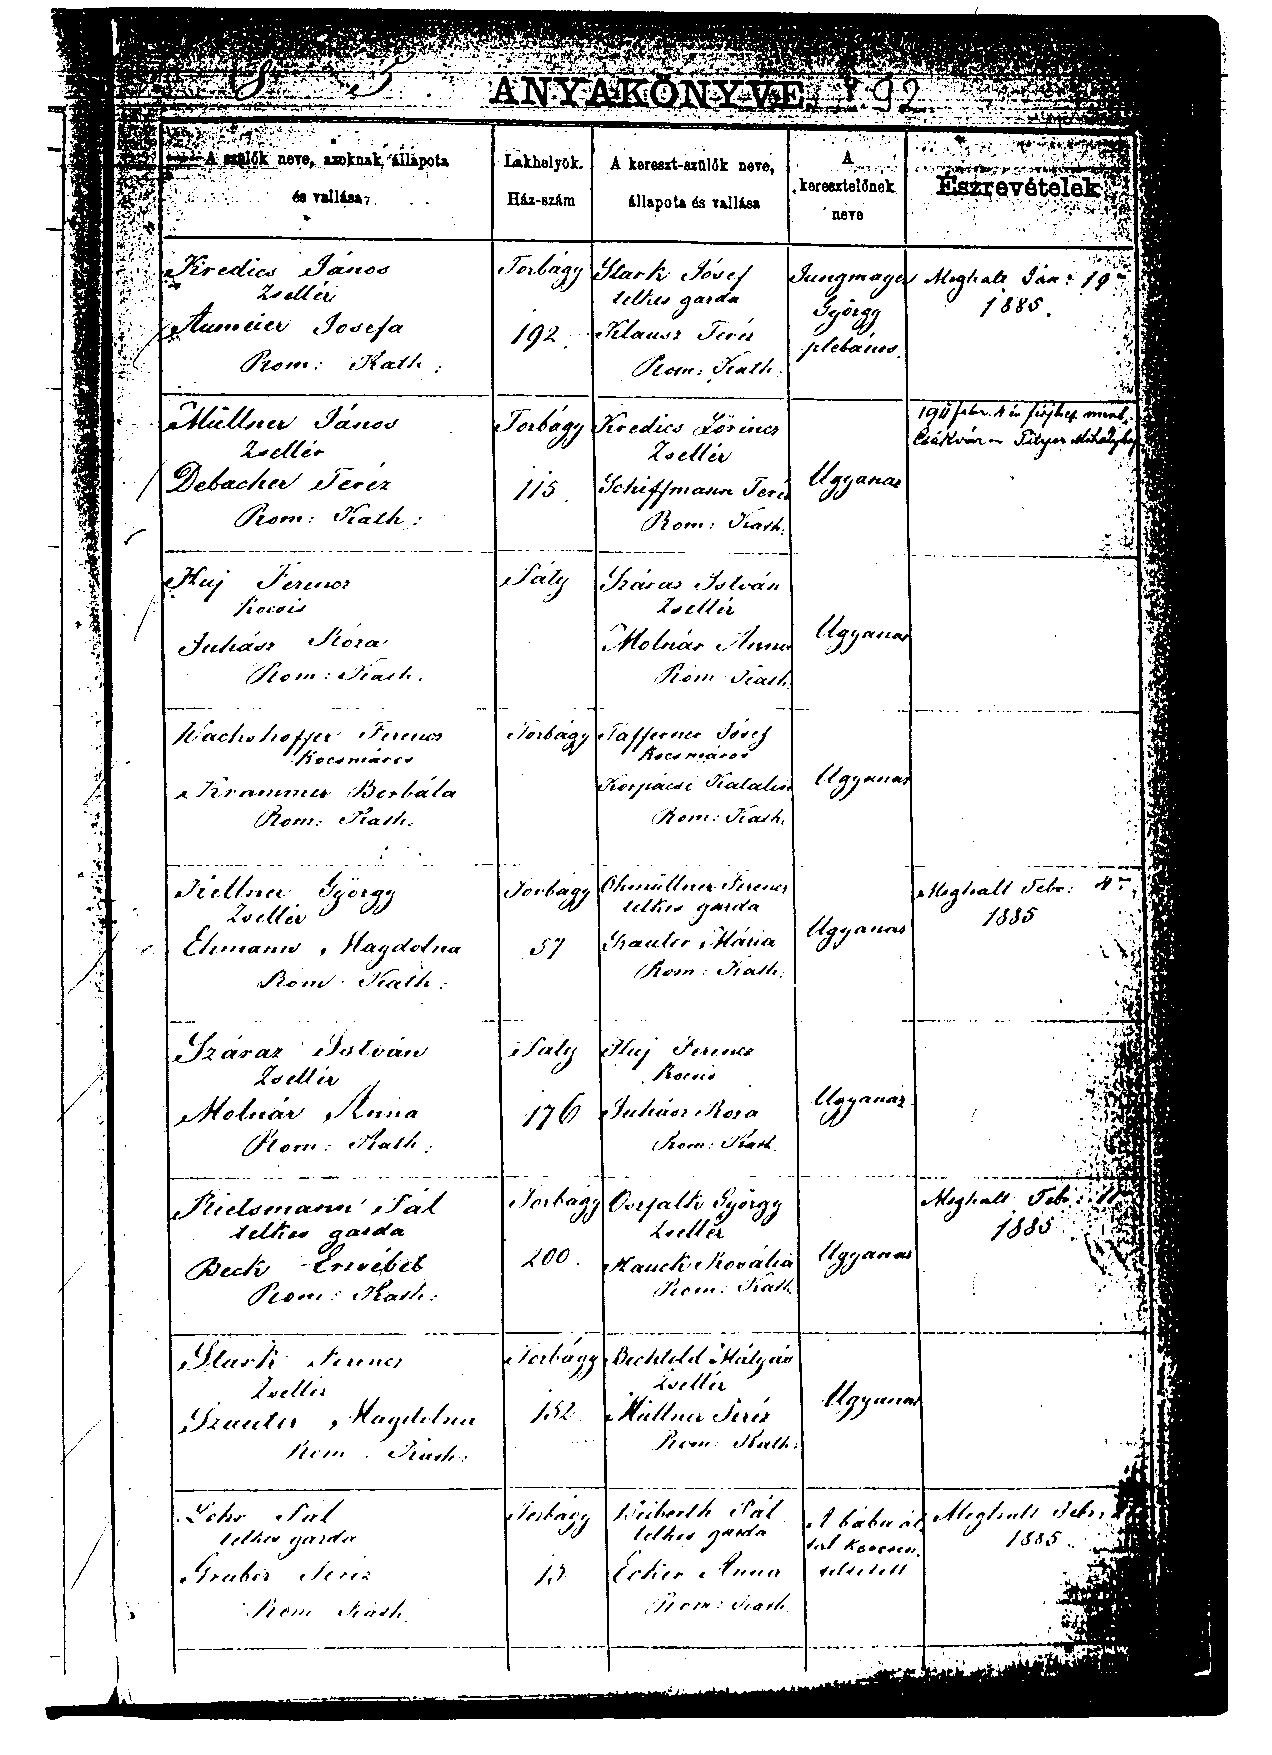 ANYAKÖNYVE. 192
A szülők neve, azoknak állapota
és vallása
Lakhelyök.
Ház-szám
A kereszt-szülők neve,
állapota és vallása
A
keresztelőnek
neve
Észrevételek
Kredics János
Zsellér
Aumeier Josefa
Rom: Kath:
Torbágy
192.
Stark Jósef
telkes garda
Klausz Teréz
Rom: Kath.
Jungmayer
György
plebános.
Meghalt Jan: 19
1885.
Müllner János
Zsellér
Debacher Teréz
Rom: Kath:
Torbágy
115.
Kredics Lörincz
Zsellér
Schiffmann Teréz
Rom: Kath.
Ugyanaz
Csákvár
Huj Ferencz
Kocsis
Juhász Róza
Rom: Kath.
Sály
Száraz István
Zsellér
Molnár Anna
Rom Kath.
Ugyanaz
Wachshoffer Ferencz
Kocsmáros
Krammer Borbála
Rom: Kath:
Torbágy
Tafferner Jósef
Kocsmáros
Korpácsi Katalin
Rom: Kath.
Ugyanaz
Kellner György
Zsellér
Ehmann Magdolna
Rom Kath:
Torbágy
57
Ohmüllner Ferencz
telkes garda
Szauter Mária
Rom: Kath:
Ugyanaz
Meghalt Febr: 4
1885
Száraz István
Zsellér
Molnár Anna
Rom: Kath:
Saly
176
Huj Ferencz
Kocsis
Juhász Roza
Rom: Kath.
Ugyanaz
Rielsmann Pál
telkes garda
Beck Ersébet
Rom: Kath:
Torbágy
200.
Osrfalk György
Zsellér
Hauck Rozália
Rom: Kath
Ugyanaz
Meghalt Febr: 11
1885
Stark Ferencz
Zsellér
Szauter Magdolna
Rom. Kath:
Torbágy
152
Bechtold Mátyás
Zsellér
Müllner Teréz
Rom: Kath:
Ugyanaz
Lohr Pál
telkes garda
Gruber Teréz
Rom Kath
Torbágy
15
Weiberth Pál
telkes garda
Ecker Anna
Rom: Kath.
A bába ál
tal keresz
teltetett
Meghalt Febr:
1885.